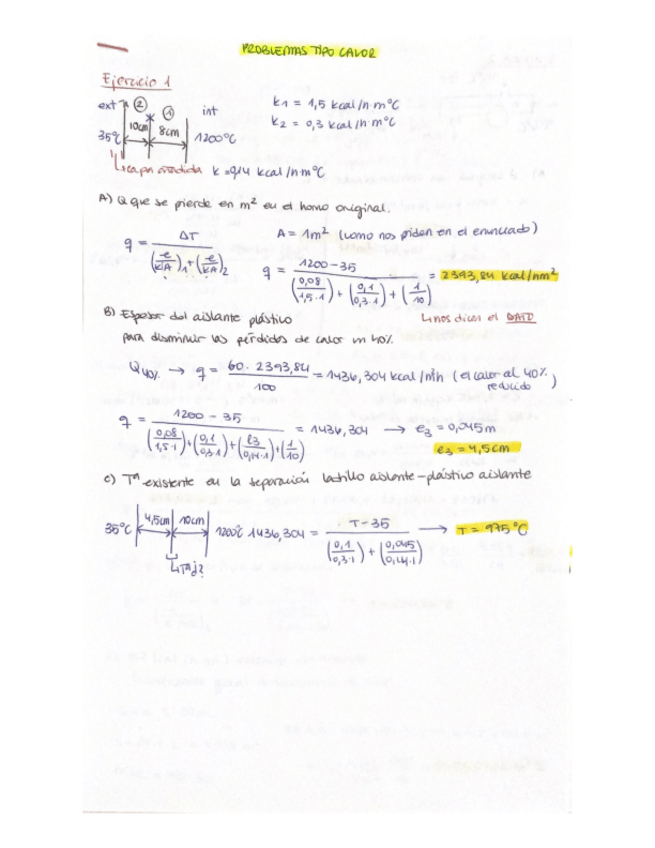 PROBLEMAS TIPO CALOR
Ejercicio 1
ext ② ① int
10cm 8cm
35ºC 1200ºC
K1 = 1,5 kcal/h·mºC
K2 = 0,3 kcal/h·mºC
↳capa añadida K = 0,14 kcal/h mºC
A) Q que se pierde en m² en el horno original.
q = ΔT / ((e/KA)1 + (e/KA)2)
A = 1m² (como nos piden en el enunciado)
q = 1200-35 / ((0,08/1,5·1) + (0,1/0,3·1) + (1/10)) = 2393,84 kcal/hm²
↳nos dicen el DATO
B) Espesor del aislante plástico
para disminuir las pérdidas de calor un 40%
Q40% → q = 60 · 2393,84 / 100 = 1436,304 kcal/m²h (el calor al 40% reducido)
q = 1200 - 35 / ((0,08/1,5·1)+(0,1/0,3·1)+(e3/0,14·1)+(1/10)) = 1436,304 → e3 = 0,045m
e3 = 4,5cm
C) Tª existente en la separación ladrillo aislante-plástico aislante
35ºC 4,5cm 10cm 1200ºC
↳Tª¿?
1436,304 = T-35 / ((0,1/0,3·1) + (0,045/0,14·1)) → T = 975ºC